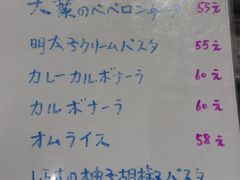 大葉のペペロンチーノ 55元
明太子クリームパスタ 55元
カレーカルボナーラ 60元
カルボナーラ 60元
オムライス 58元
の柚子胡椒パスタ